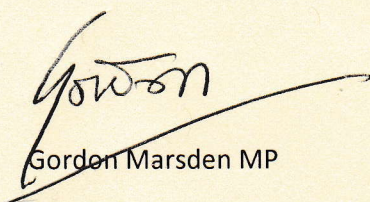 Gordon
Gordon Marsden MP